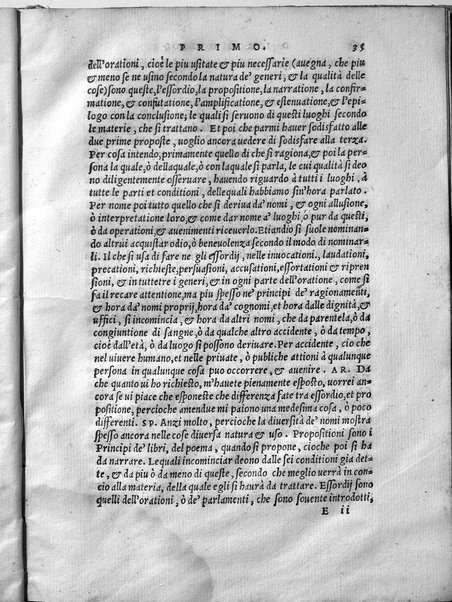 PRIMO. 35
dell'orationi, cioè le piu usitate & piu necessarie (auegna, che piu
& meno se ne usino secondo la natura de' generi, & la qualità delle
cose) sono queste, l'essordio, la propositione, la narratione, la confir-
matione, & confutatione, l'amplificatione, & estenuatione, & l'epi-
logo con la conclusione, le quali si seruono di questi luoghi secondo
le materie, che si trattano. Et poi che parmi hauer sodisfatto alle
due prime proposte, uoglio ancora uedere di sodisfare alla terza.
Per cosa intendo, primamente quello di che si ragiona, & poi la per-
sona la quale, ò dellaquale, ò con laquale si parla, le cui qualità si de-
deno diligentemente osseruare, hauendo riguardo à tutti i luoghi, à
tutte le parti et conditioni, dellequali habbiamo sin'hora parlato.
Per nome poi tutto quello che si deriua da' nomi, & ogni allusione,
ò interpretatione loro, & come dar nome a' luoghi ò pur da questi,
ò da operationi, & auenimenti riceuerlo. Etiandio si suole nominan-
do altrui acquistar odio, ò beneuolenza secondo il modo di nominar-
li. Il che si usa di fare ne gli essordij, nelle inuocationi, laudationi,
precationi, richieste, persuasioni, accusationi, essortationi et ripren
sioni, & in tutte tre i generi, & in ogni parte dell'oratione, come si
fa il recare attentione, ma piu spesso ne' principi de' ragionamenti,
& hora da' nomi proprij, hora da' cognomi, et hora dalle dignità, &
uffici, si incomincia, & hora da altri nomi, che da parentela, ò da
congiuntione di sangue, ò da qualche altro accidente, ò da tempo,
cioè dall'età, ò da luogo si possono deriuare. Per accidente, cio che
nel uiuere humano, et nelle priuate, ò publiche attioni à qualunque
persona in qualunque cosa puo occorrere, & auenire. AR. Da
che quanto ui ho richiesto, m'hauete pienamente esposto, uorrei an
cora se ui piace che esponeste che differenza fate tra essordio, et pro
positione, percioche amendue mi paiono una medesima cosa, ò poco
differenti. SP. Anzi molto, percioche la diuersità de' nomi mostra
spesso ancora nelle cose diuersa natura & uso. Propositioni sono i
Principi de' libri, del poema, quando si propone, cioche poi si ha
da narrare. Lequali incominciar deono dalle sei conditioni gia det-
te, & da piu ò da meno di queste, secondo che meglio uerrà in con-
cio alla materia, della quale egli si haurà da trattare. Essordij sono
quelli dell'orationi, ò de' parlamenti, che sono souente introdotti,
E ii